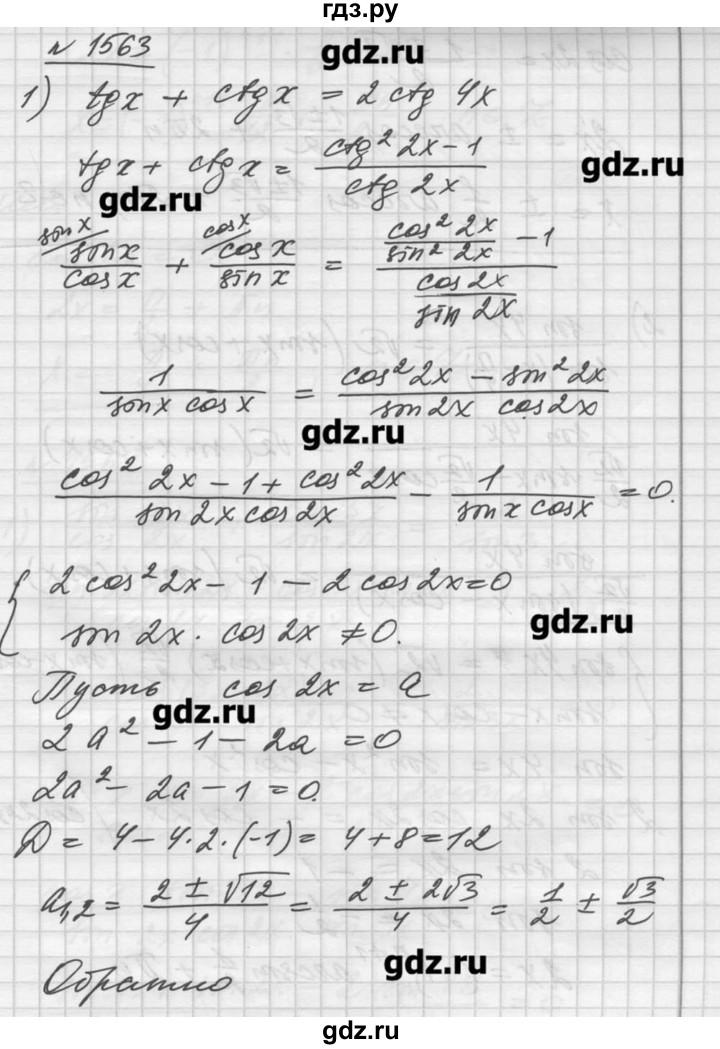 гдз.ру
№ 1563
gdz.ru
1) tgx + ctgx = 2 ctg 4x
tgx + ctgx = (ctg² 2x - 1)/(ctg 2x)
gdz.ru
gdz.ru
sinx/ sinx/cosx + cosx/ cosx/sinx = (cos² 2x/sin² 2x - 1)/(cos 2x/sin 2x)
1/(sinx cosx) = (cos² 2x - sin² 2x)/(sin 2x cos 2x)
gdz.ru
(cos² 2x - 1 + cos² 2x)/(sin 2x cos 2x) - 1/(sinx cosx) = 0.
{ 2 cos² 2x - 1 - 2 cos 2x = 0
sin 2x · cos 2x ≠ 0.
gdz.ru
Пусть cos 2x = a
gdz.ru
2a² - 1 - 2a = 0
2a² - 2a - 1 = 0.
D = 4 - 4·2·(-1) = 4 + 8 = 12
a₁,₂ = (2 ± √12)/4 = (2 ± 2√3)/4 = 1/2 ± √3/2
gdz.ru
Обратно
gdz.ru